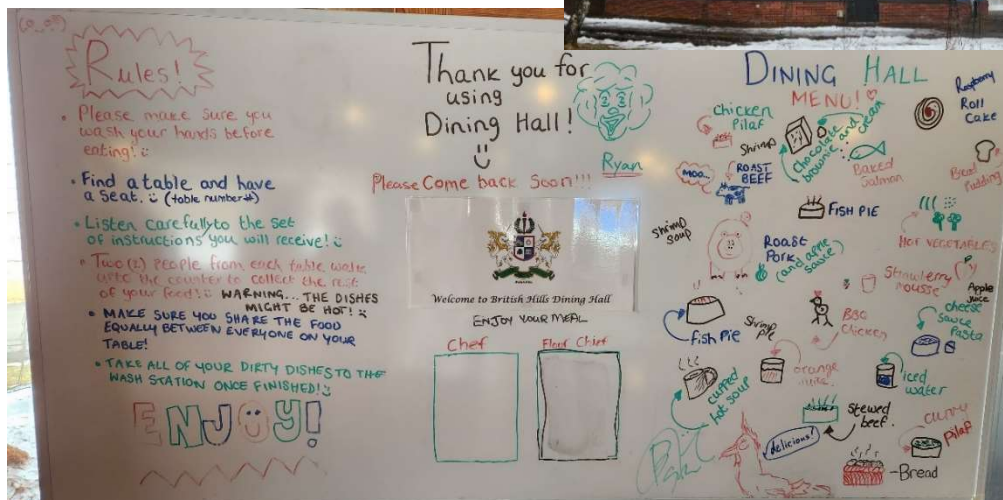 Rules!
• Please make sure you
wash your hands before
eating!
• Find a table and have
a seat. (table number#)
• Listen carefully to the set
of instructions you will receive!
• Two (2) people from each table walk
the counter to collect the rest
of your food! WARNING... THE DISHES
MIGHT BE HOT!
• MAKE SURE YOU SHARE THE FOOD
EQUALLY BETWEEN EVERYONE ON YOUR
TABLE!
• TAKE ALL OF YOUR DIRTY DISHES TO THE
WASH STATION ONCE FINISHED!
ENJOY!
Thank you for
using
Dining Hall!
Ryan
Please Come back Soon!!!
Welcome to British Hills Dining Hall
ENJOY YOUR MEAL
Chef
Floor Chief
DINING HALL
MENU!
Chicken
Pilaf
Shrimp
chocolate
brownie and
cream
Raspberry
Roll
Cake
MOO..
ROAST
BEEF
Baked
Salmon
Bread
Pudding
FISH PIE
shrimp
soup
Roast
Pork
(and apple
sauce)
HOT VEGETABLES
Strawberry
mousse
Apple
juice
fish Pie
Shrimp
pie
BBQ
Chicken
cheese
sauce
Pasta
cupped
hot soup
orange
iced
water
stewed
beef.
delicious!
curry
pilaf
-Bread